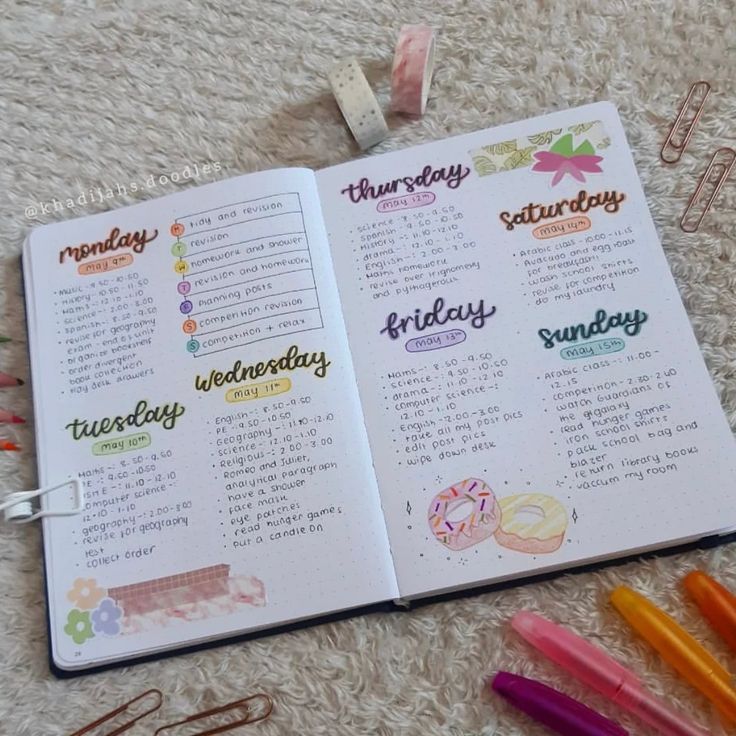 @khadijahs.doodles
monday
may 9th
music-: 9.50 -10.50
History -: 10.50 - 11.50
Mams -: 12.10 -1.10
Science-: 2.00 - 3.00
Spanish-: 8.50 - 9.50
revise for geography
exam - end of unit
organize bookshelf
order divergent
book collection
tidy desk drawers
M tidy and revision
T revision
W homework and shower
T revision and homework
F planning posts
S competition revision
S competition + relax
tuesday
may 10th
Maths -: 8.50 - 9.50
PE -: 9.50 - 10.50
- 11.10 - 12.10
computer science -:
12.10 - 1.10
geography -: 2.00 - 3.00
revise for geography
test
collect order
wednesday
may 11th
English-: 8.50 - 9.50
PE -: 9.50 - 10.50
Geography -: 11.10 - 12.10
science -: 12.10 - 1.10
Religious -: 2.00 - 3.00
Romeo and Juliet,
analytical paragraph
have a shower
face mask
eye patches
read hunger games
put a candle on
28
thursday
may 12th
science - 8.50 - 9.50
spanish - 9.50 - 10.50
History -: 11.10 - 12.10
drama -: 12.10 - 1.10
English -: 2.00 - 3.00
Maths homework
revise over trigonometry
and pythagoreus
friday
may 13th
Mams -: 8.50 - 9.50
science -: 9.50 - 10.50
drama -: 11.10 - 12.10
computer science -:
12.10 - 1.10
English -2.00 - 3.00
take all my post pics
edit post pics
wipe down desk
saturday
may 14th
Arabic class - 10.00 - 11.15
avocado and egg toast
for breakfast!!
wash school shirts
revise for competition
do my laundry
sunday
may 15th
Arabic class -: 11.00 -
12.15
competition - 2.30 -
watch Guardians of
the galaxy
read hunger games
iron school shirts
pack school bag and
blazer
return library books
vaccum my room